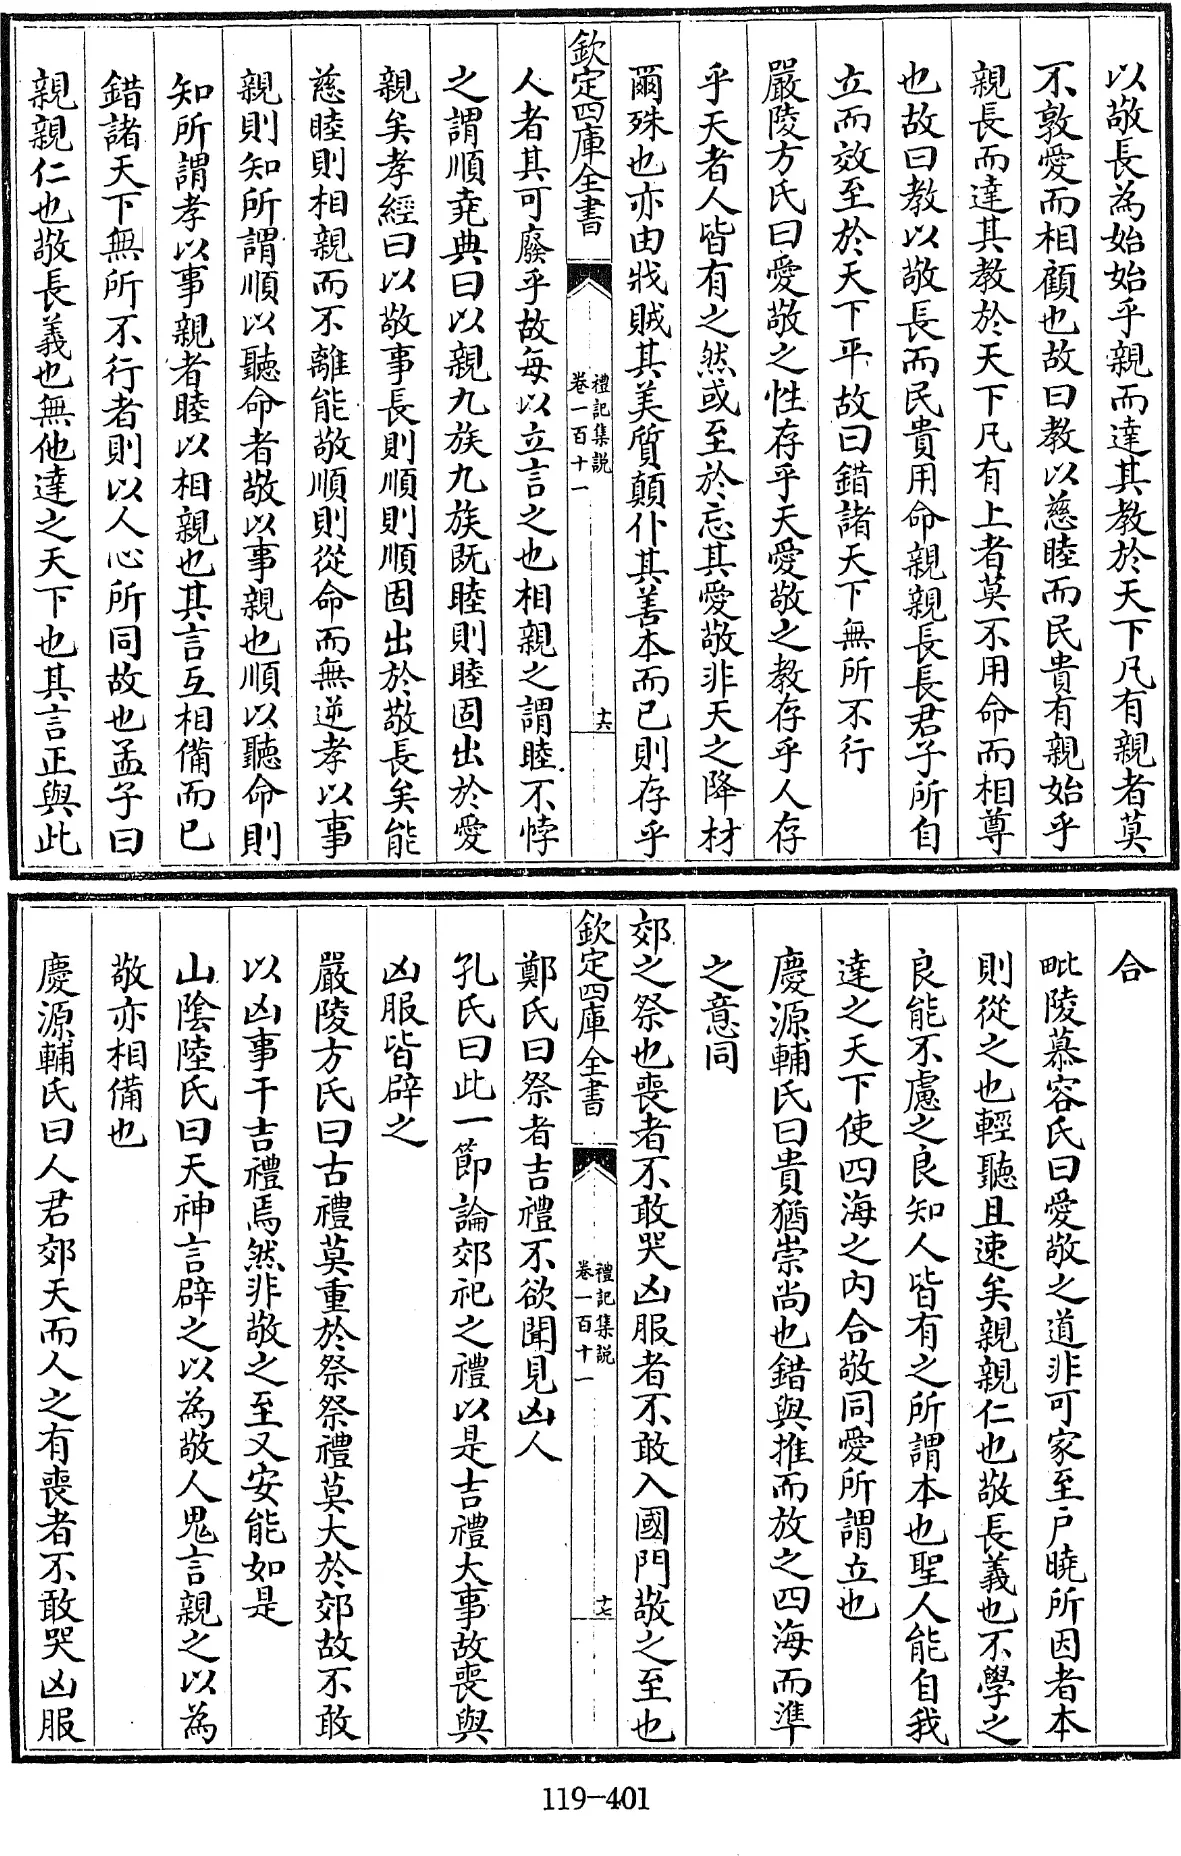 以敬長為始始乎親而達其教於天下凡有親者莫
不敦愛而相顧也故曰教以慈睦而民貴有親始乎
親長而達其教於天下凡有上者莫不用命而相尊
也故曰教以敬長而民貴用命親親長長君子所自
立而效至於天下平故曰錯諸天下無所不行
嚴陵方氏曰愛敬之性存乎天愛敬之教存乎人存
乎天者人皆有之然或至於忘其愛敬非天之降材
爾殊也亦由戕賊其美質顛仆其善本而已則存乎
欽定四庫全書
禮記集說
卷一百十一
十六
人者其可廢乎故每以立言之也相親之謂睦不悖
之謂順堯典曰以親九族九族既睦則睦固出於愛
親矣孝經曰以敬事長則順則順固出於敬長矣能
慈睦則相親而不離能敬順則從命而無逆孝以事
親則知所謂順以聽命者敬以事親也順以聽命則
知所謂孝以事親者睦以相親也其言互相備而已
錯諸天下無所不行者則以人心所同故也孟子曰
親親仁也敬長義也無他達之天下也其言正與此
合
毗陵慕容氏曰愛敬之道非可家至戶曉所因者本
則從之也輕聽且速矣親親仁也敬長義也不學之
良能不慮之良知人皆有之所謂本也聖人能自我
達之天下使四海之內合敬同愛所謂立也
慶源輔氏曰貴猶崇尚也錯與推而放之四海而準
之意同
郊之祭也喪者不敢哭凶服者不敢入國門敬之至也
欽定四庫全書
禮記集說
卷一百十一
十七
鄭氏曰祭者吉禮不欲聞見凶人
孔氏曰此一節論郊祀之禮以是吉禮大事故喪與
凶服皆辟之
嚴陵方氏曰古禮莫重於祭祭禮莫大於郊故不敢
以凶事干吉禮焉然非敬之至又安能如是
山陰陸氏曰天神言辟之以為敬人鬼言親之以為
敬亦相備也
慶源輔氏曰人君郊天而人之有喪者不敢哭凶服
119-401